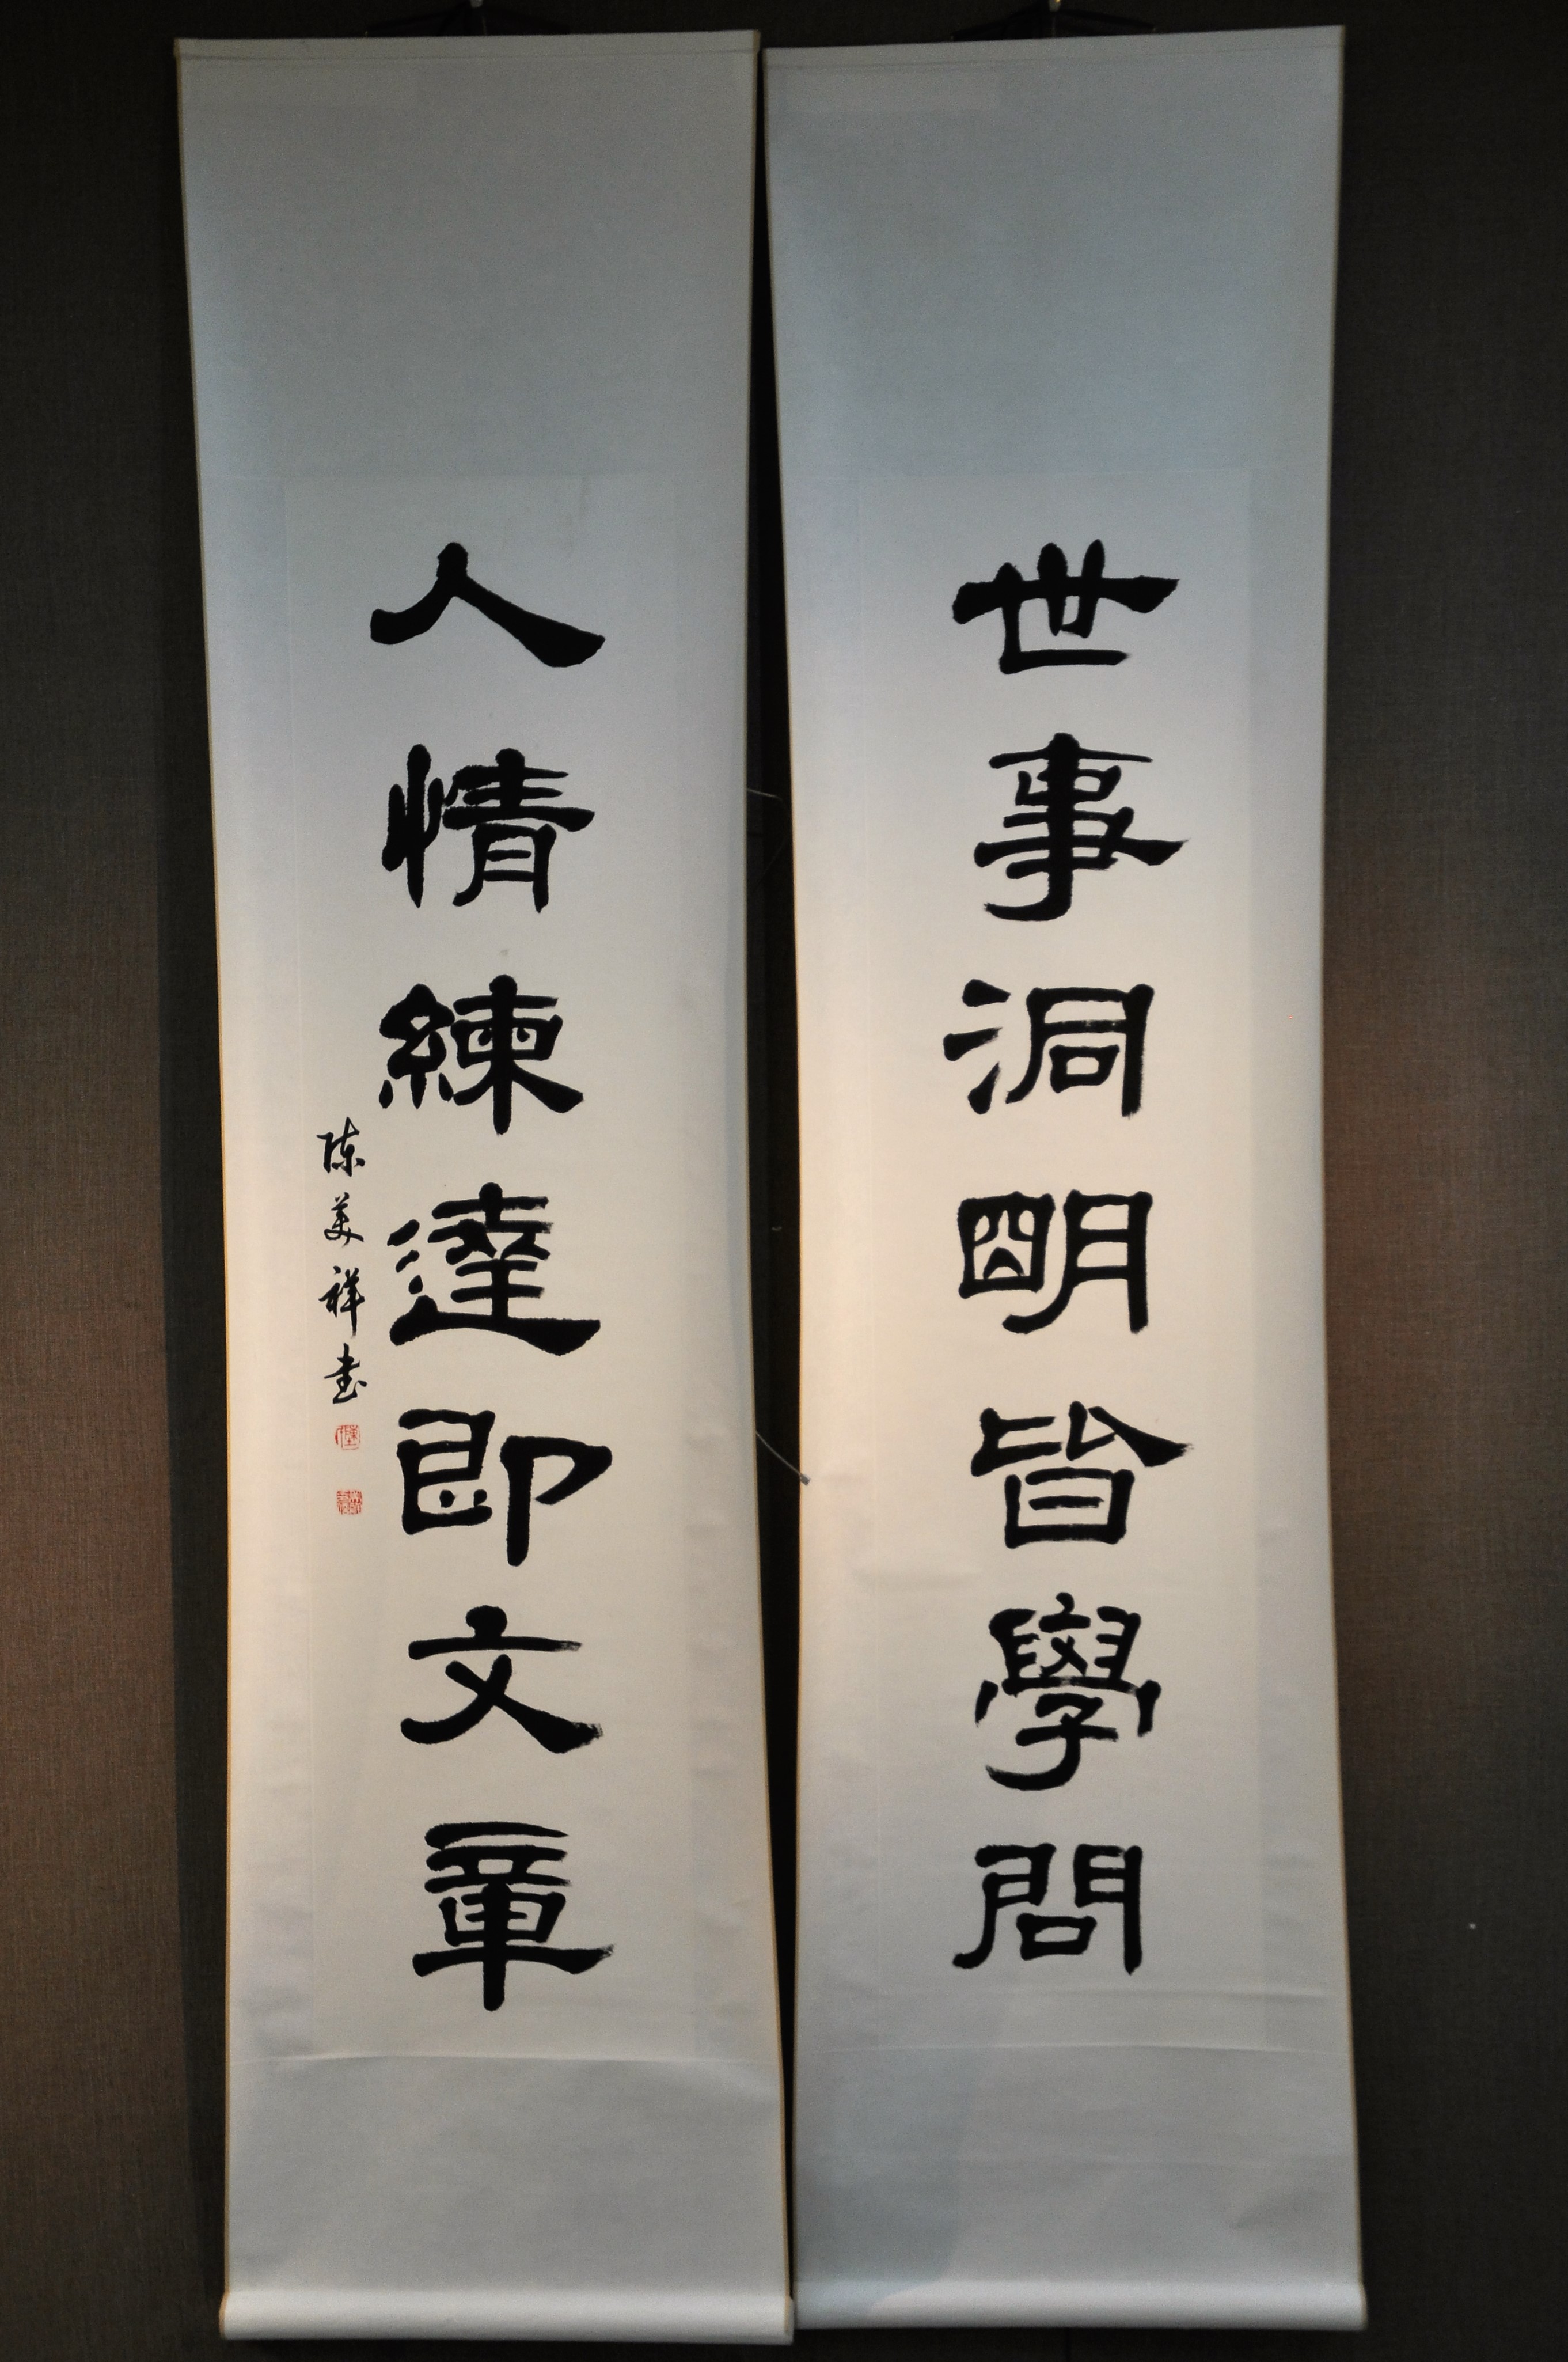 世事洞明皆學問
人情練達即文章
陈美祥书